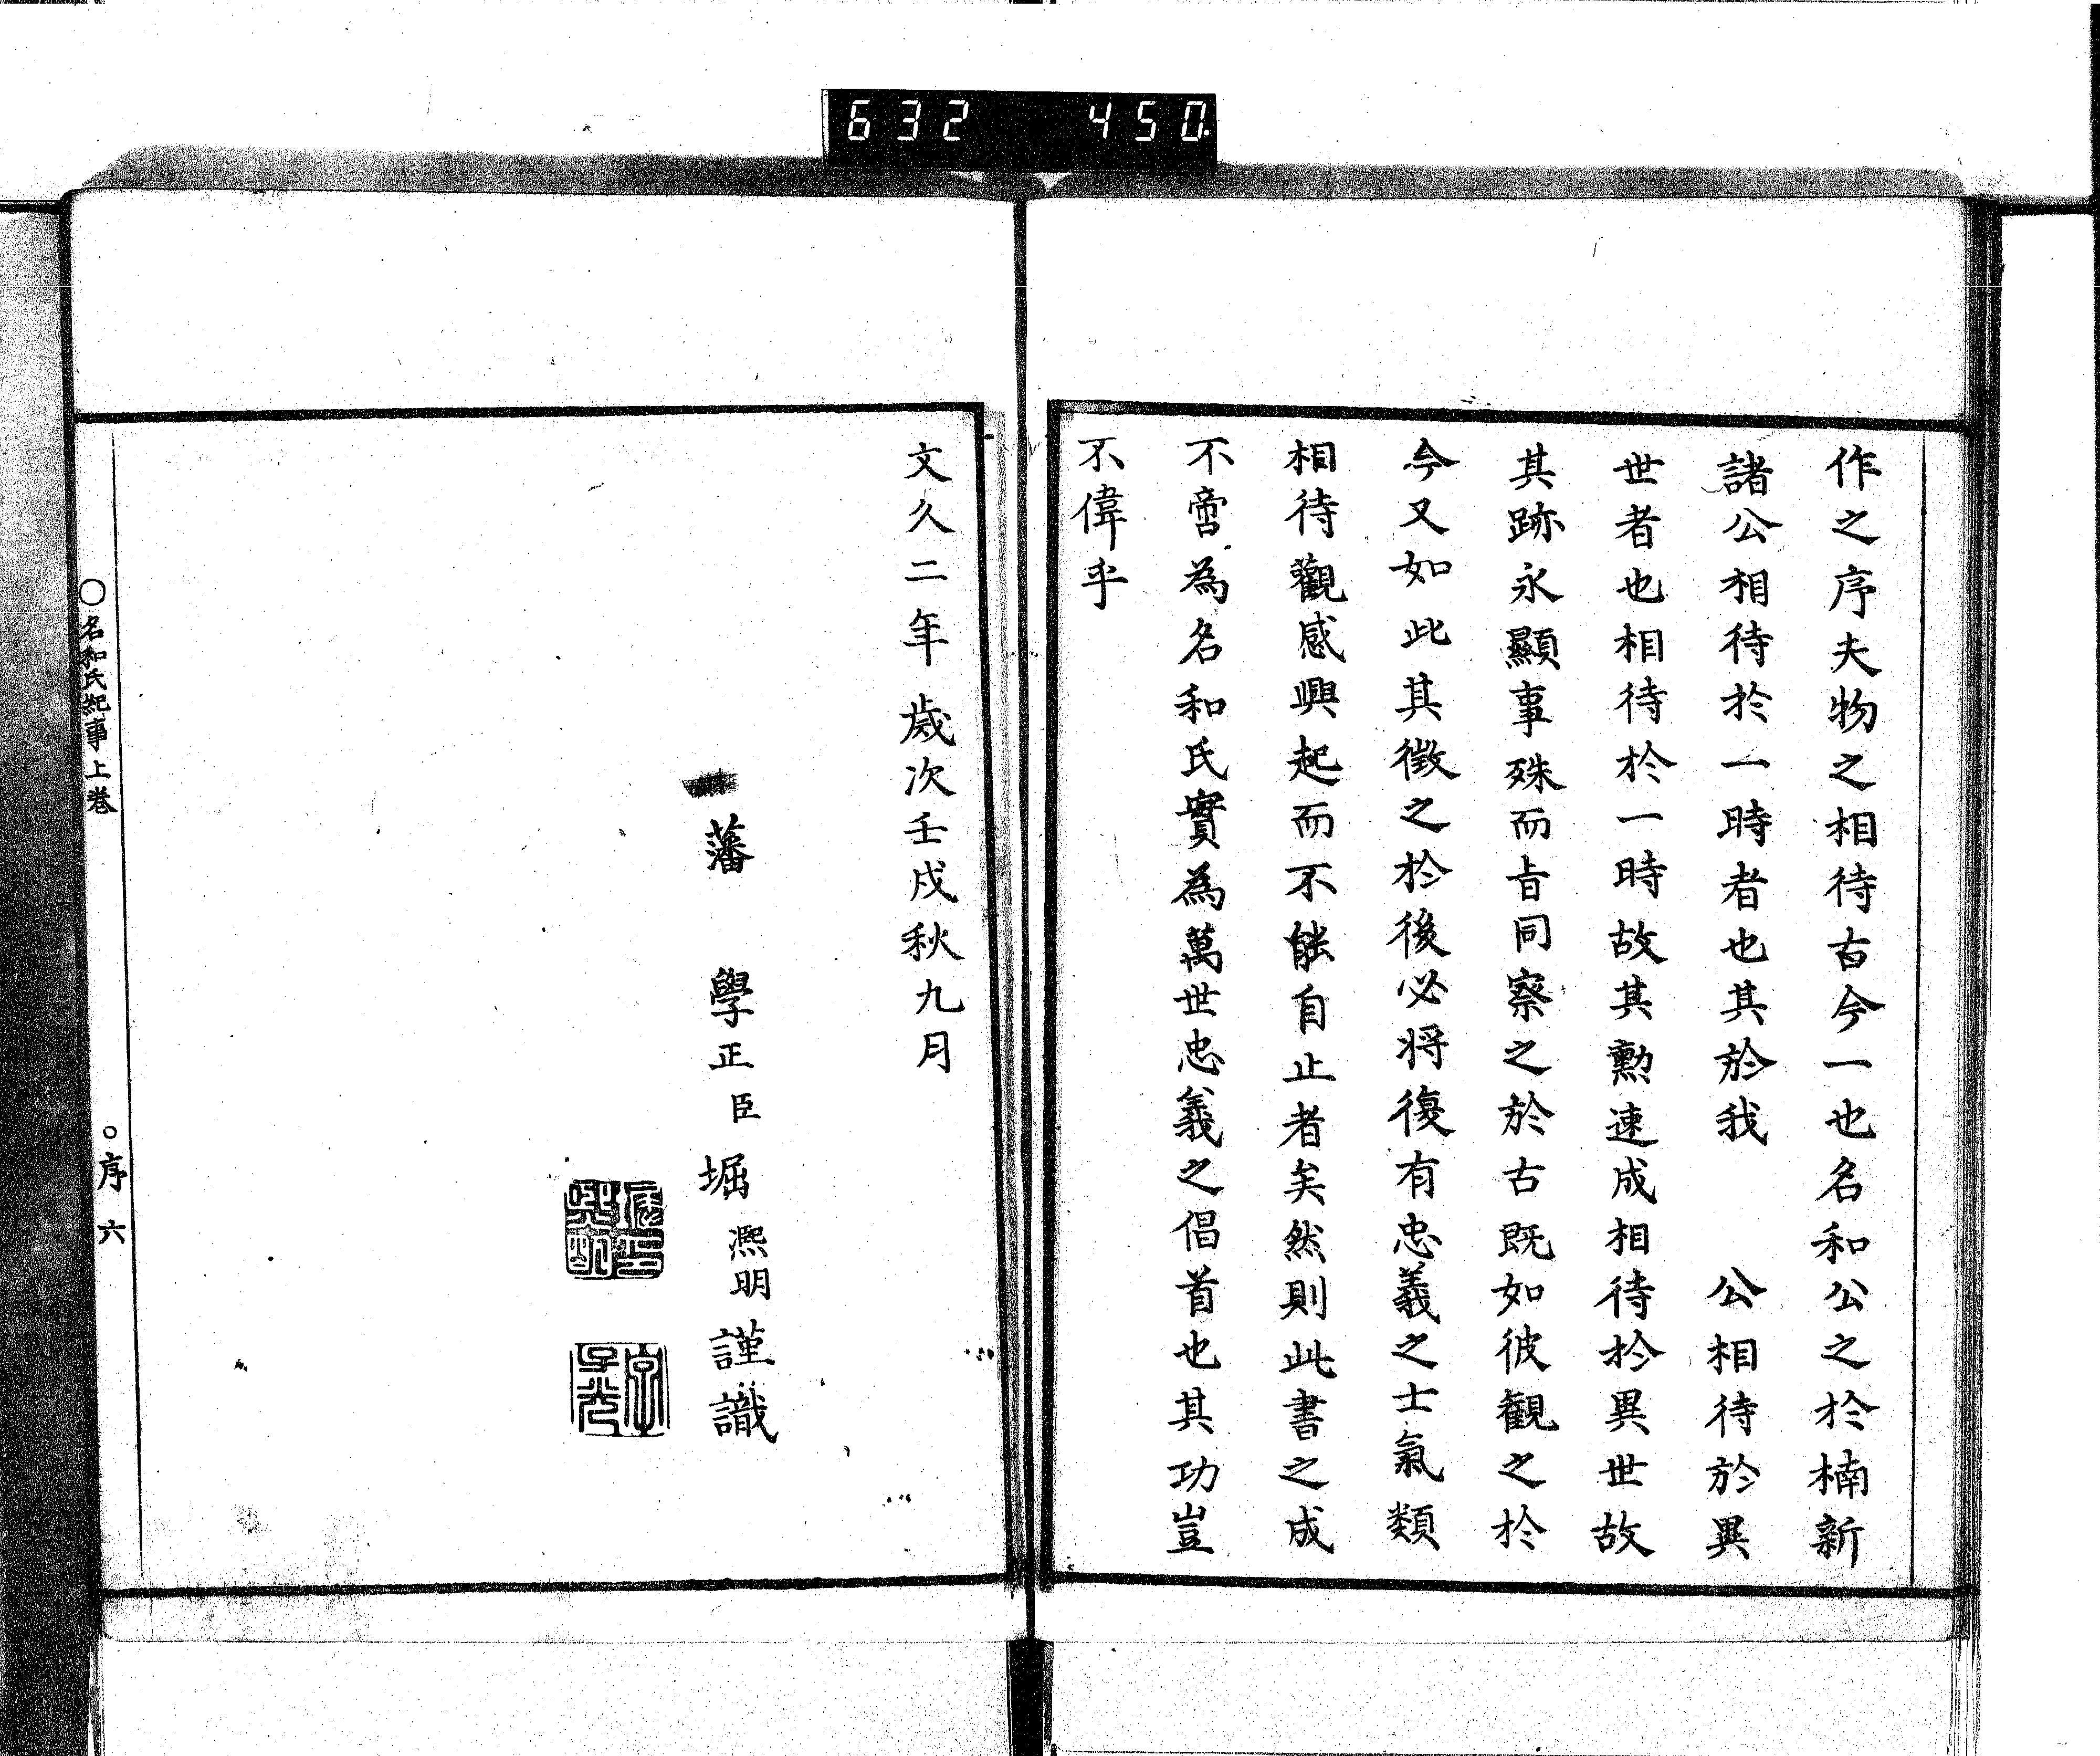 632 450
作之序夫物之相待古今一也名和公之於楠新
諸公相待於一時者也其於我　　公相待於異
世者也相待於一時故其勲速成相待於異世故
其跡永顯事殊而旨同察之於古既如彼観之於
今又如此其徴之於後必將復有忠義之士氣類
相待觀感興起而不能自止者矣然則此書之成
不啻為名和氏實為萬世忠義之倡首也其功豈
不偉乎
文久二年歲次壬戌秋九月
藩　學正臣堀熈明謹識
○名和氏紀事上巻
○序　六